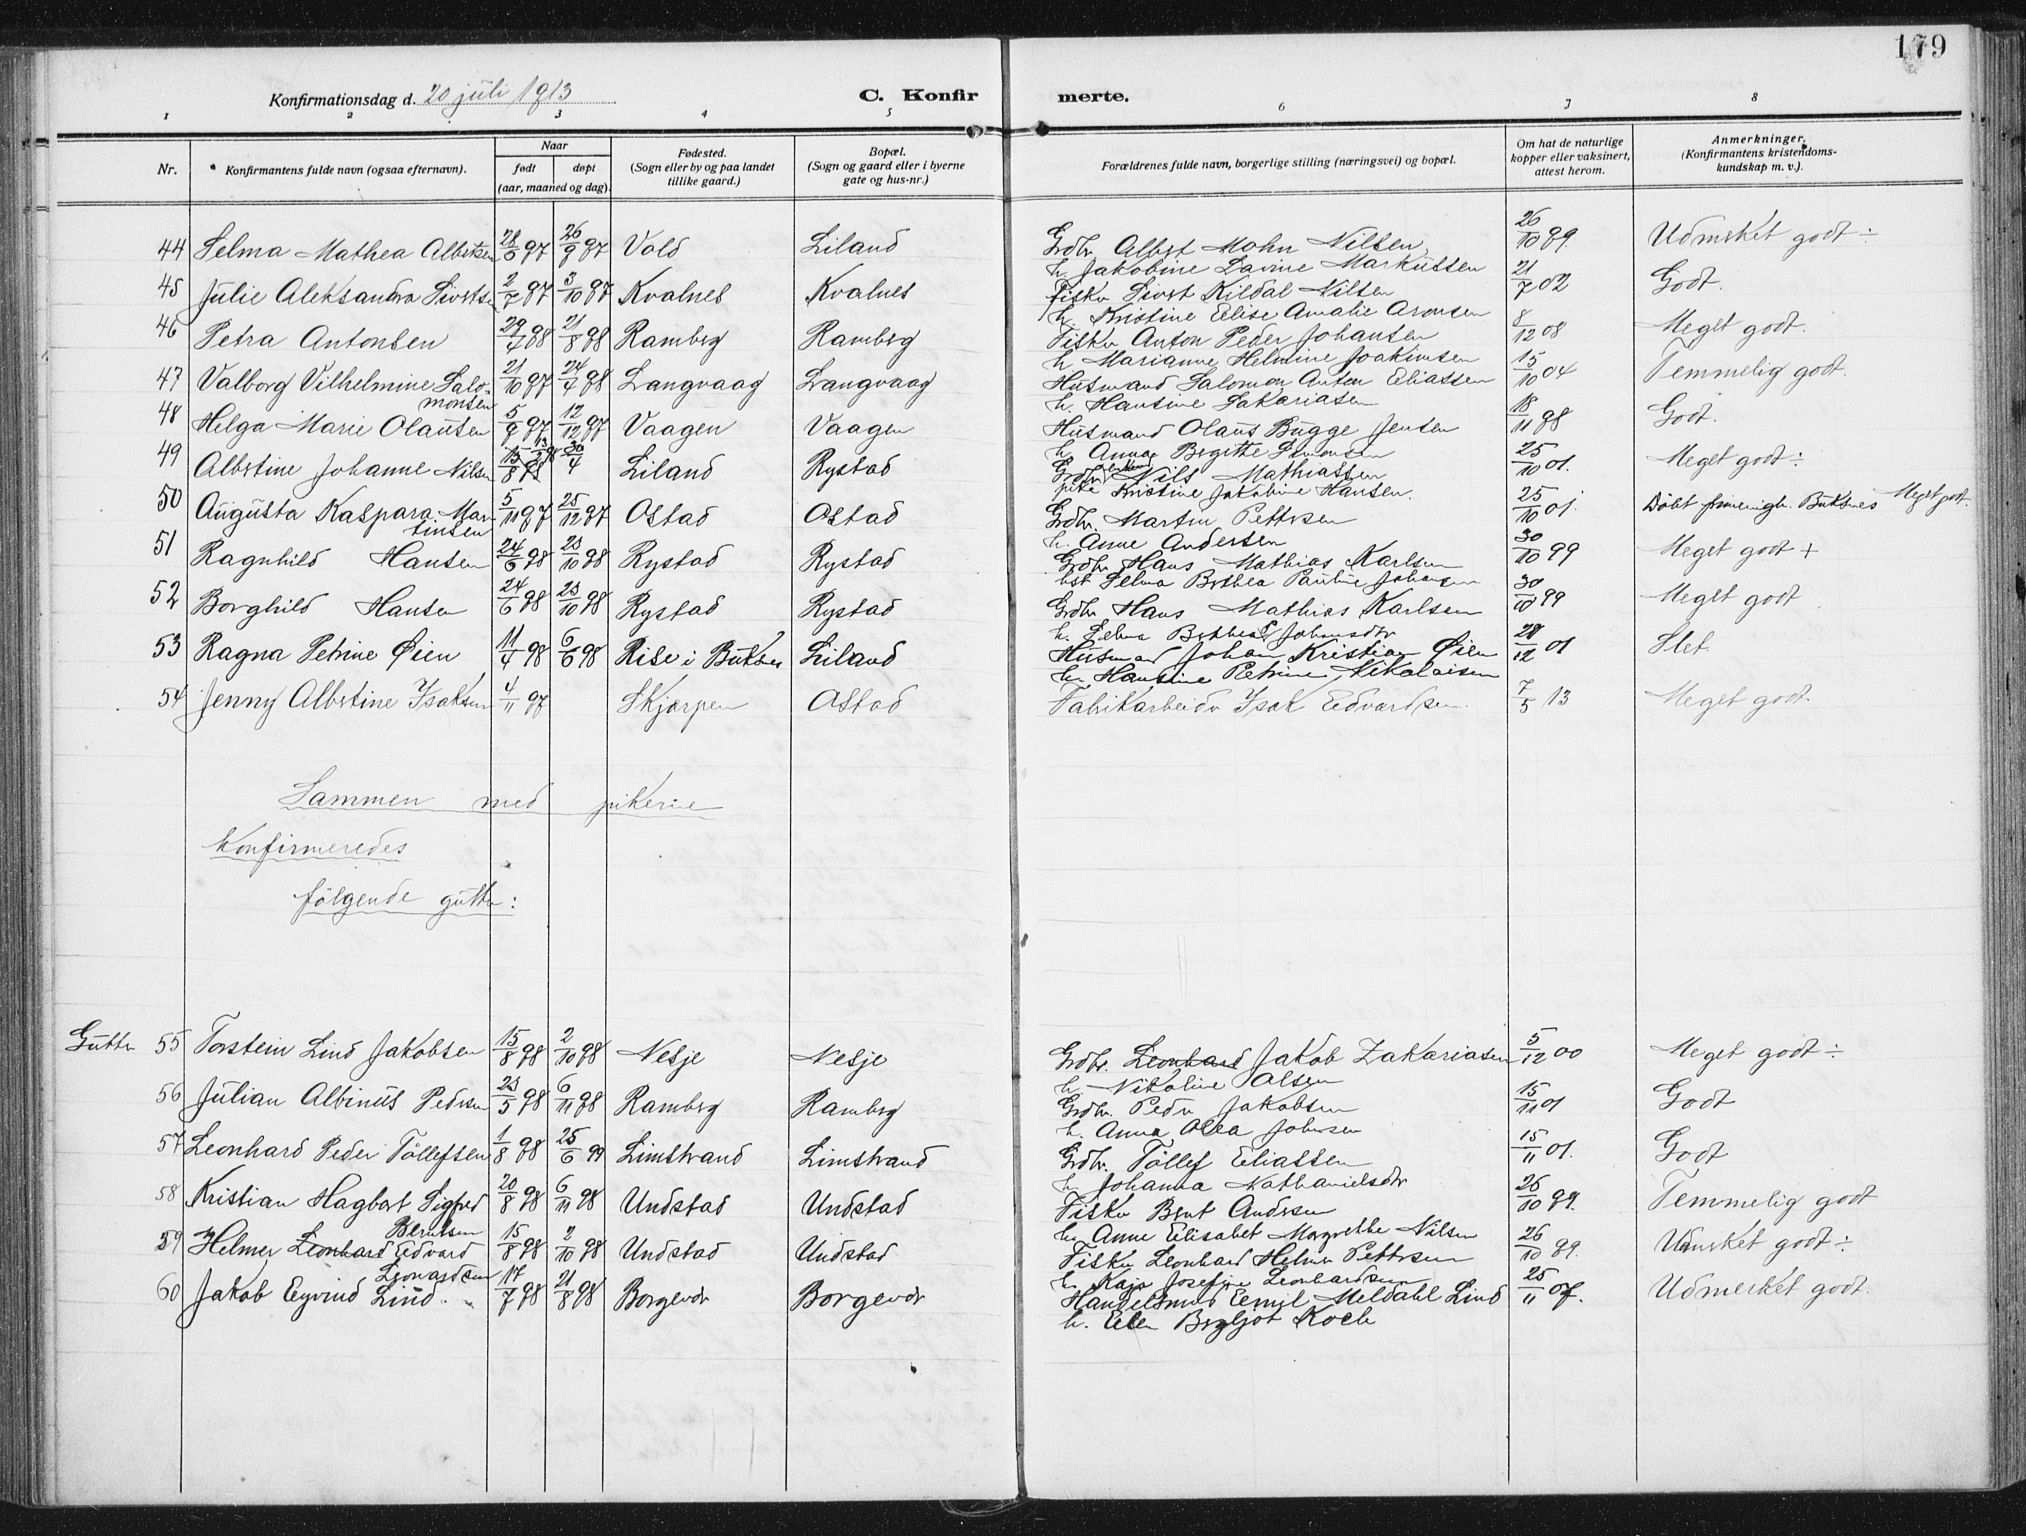 179
Konfirmationsdag d. 20 juli 1913
C. Konfirmerte.
1 2 3 4 5 6 7 8
Nr.
Konfirmantens fulde navn (ogsaa efternavn).
Naar
født døpt
(aar, maaned og dag).
Fødested.
(Sogn eller by og paa landet
tillike gaard.)
Bopæl.
(Sogn og gaard eller i byerne
gate og hus-nr.)
Forældrenes fulde navn, borgerlige stilling (næringsvei) og bopæl.
Om hat de naturlige
kopper eller vaksinert,
attest herom.
Anmerkninger.
(Konfirmantens kristendoms-
kundskap m. v.).
44 Selma Mathea Albertsen 28/6 97 26/9 97 Vold Liland Grdbr. Albert Mohn Nilsen 26/10 99. Udmerket godt ÷
h. Jakobine Lavine Markussen
45 Julie Aleksandra Sivertsen 2/7 97 3/10 97 Kvalnes Kvalnes Fisker Sivert Kildal Nilsen 21/7 02 Godt.
h. Kristine Elise Amalie Aronsen
46 Petra Antonsen 29/4 98 21/8 98 Ramberg Ramberg Fisker Anton Peder Johansen 8/12 08 Meget godt.
h. Marianne Helmine Joakimsen
47 Valborg Vilhelmine Salo- 21/10 97 24/4 98 Langvaag Langvaag Husmand Salomon Anton Eliassen 15/10 04 Temmelig godt.
monsen h. Hansine Sakariasen
48 Helga Marie Olausen 5/9 97 12/12 97 Vaagen Vaagen Husmand Olaus Bugge Jensen 18/11 98 Godt.
h. Anna Bergitte Simonsen
49 Albertine Johanne Nilsen 15/8 98 13/2 98 30/4 Liland Rystad Nils Mathiassen 25/10 01. Meget godt ÷
pike Kristine Jakobine Hansen.
50 Augusta Kaspara Mar- 5/11 97 25/12 97 Ostad Ostad Grdbr. Martin Pettersen 25/10 01. Døbt frimenigh. Buksnes Meget godt.
tinsen h. Anne Andersen
51 Ragnhild Hansen 24/6 98 23/10 98 Rystad Rystad Grdbr. Hans Mathias Karlsen 30/10 99 Meget godt +
hst Selma Berthea Pauline Johansen
52 Borghild Hansen 24/6 98 23/10 98 Rystad Rystad Grdbr Hans Mathias Karlsen 30/10 99 Meget godt
h. Selma Berthea P Johansdtr
53 Ragna Petrine Øien 11/4 98 6/6 98 Rise i Buksnes Liland Husmand Johan Kristian Øien 28/12 01 Slet.
h. Hansine Petrine Nikolaisen
54 Jenny Albertine Isaksen 4/11 97 Skjerpen Ostad Fabrikarbeider Isak Edvardsen 7/5 13 Meget godt.
Sammen med pikerne
Konfirmeredes
følgende gutter:
Gutter 55 Torstein Lind Jakobsen 15/8 98 2/10 98 Nesje Nesje Grdbr. Leonhard Jakob Zakariasen 5/12 00 Meget godt ÷
h. Nikoline Olsen
56 Julian Albinus Pedersen 23/5 98 6/11 98 Ramberg Ramberg Grdbr. Peder Jakobsen 15/11 01 Godt
h. Anna Olea Johnsen
57 Leonhard Peder Tollefsen 1/8 98 25/6 99 Limstrand Limstrand Grdbr. Tollef Eliassen 15/11 01. Godt
h. Johanna Nathanielsdtr
58 Kristian Hagbart Sigfred 20/8 98 6/11 98 Undstad Undstad Fisker Bernt Andersen 26/10 99. Temmelig godt
Berntsen h. Anne Elisabet Margrethe Nilsen
59 Helmer Leonhard Edvard 15/8 98 2/10 98 Undstad Undstad Fisker Leonhard Helmer Pettersen 26/10 99. Udmerket godt ÷
Leonardsen h. Kaja Josefine Leonhardsen
60 Jakob Eyvind Lind. 17/7 98 21/8 98 Borgevær Borgevær Handelsmand Eemil Meldahl Lind 25/11 07. Udmerket godt.
h. Elen Bergljot Koch